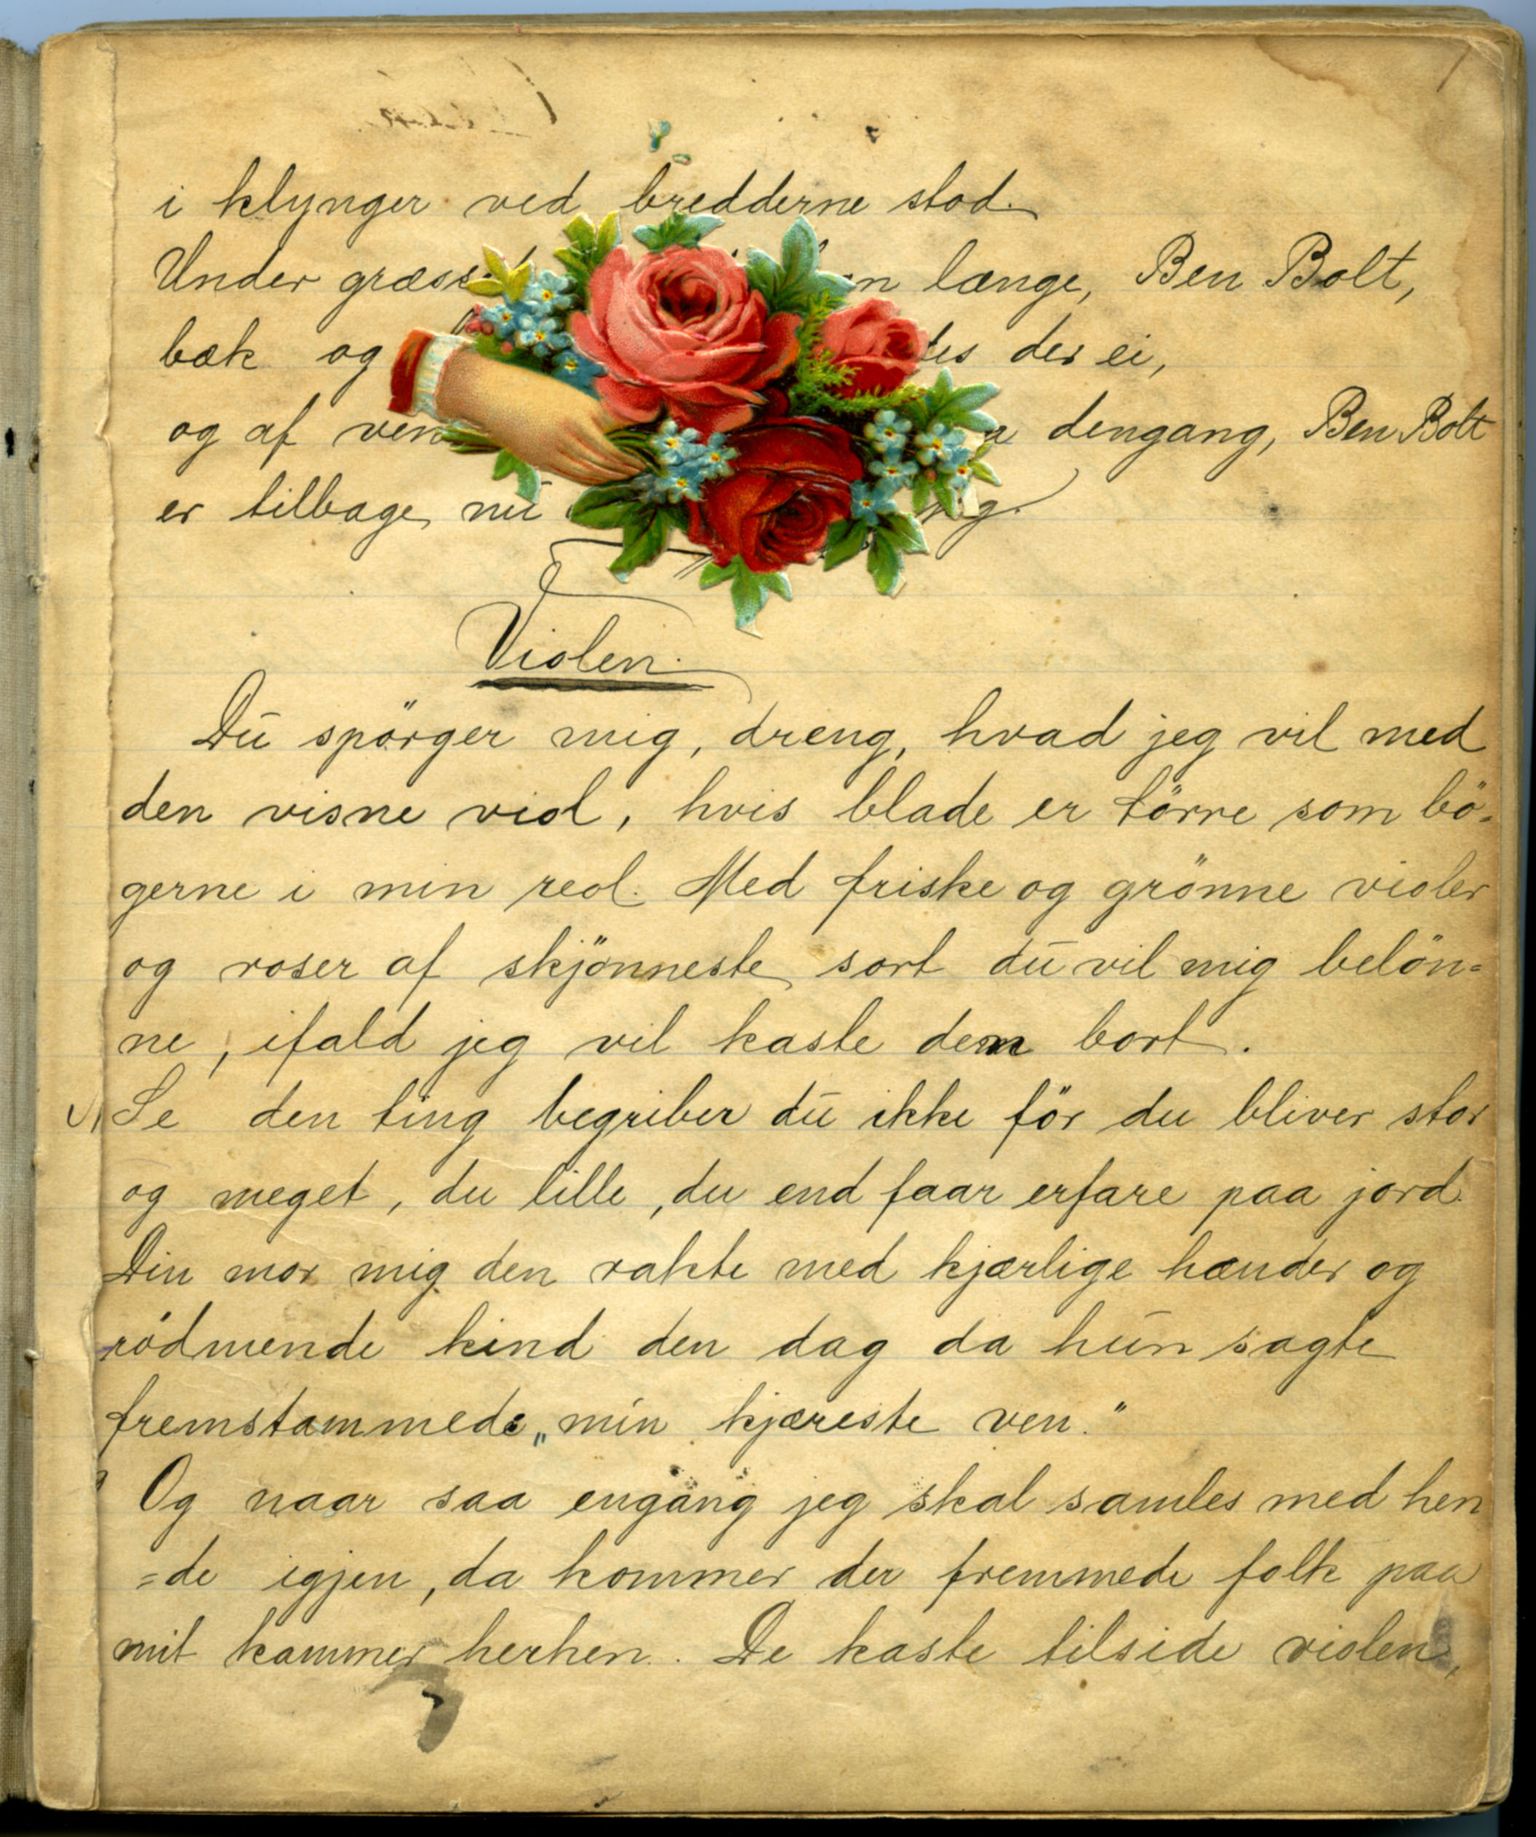 i klynger ved bredderne stod.
Under græsset længe, Ben Bolt,
bæk og des der ei,
og af ven dengang, Ben Bolt
er tilbage nu
Violen.
Du spörger mig, dreng, hvad jeg vil med
den visne viol, hvis blade er törre som bö-
gerne i min reol. Med friske og grönne violer
og roser af skjönneste sort du vil mig belön=
ne, ifald jeg vil kaste dem bort.
Se den ting begriber du ikke för du bliver stor
og meget, du lille, du end faar erfare paa jord.
Din mor mig den rakte med kjærlige hænder og
rödmende kind den dag da hun sagte
fremstammede „min kjæreste ven."
Og naar saa engang jeg skal samles med hen
=de igjen, da kommer der fremmede folk paa
mit kammer herhen. De kaste tilside violen,